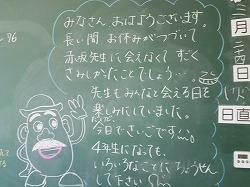 みなさん、おはようございます。
長い間 お休みがつづいて
赤坂先生に会えなくて すごく
さみしかたことでしょう…。
先生もみんなと会える日を
楽しみにしていました。
今日でさいごです…。
4年生になっても、
いろいろなことにちょうせん
して下さい
三月
二四日
(火)
96